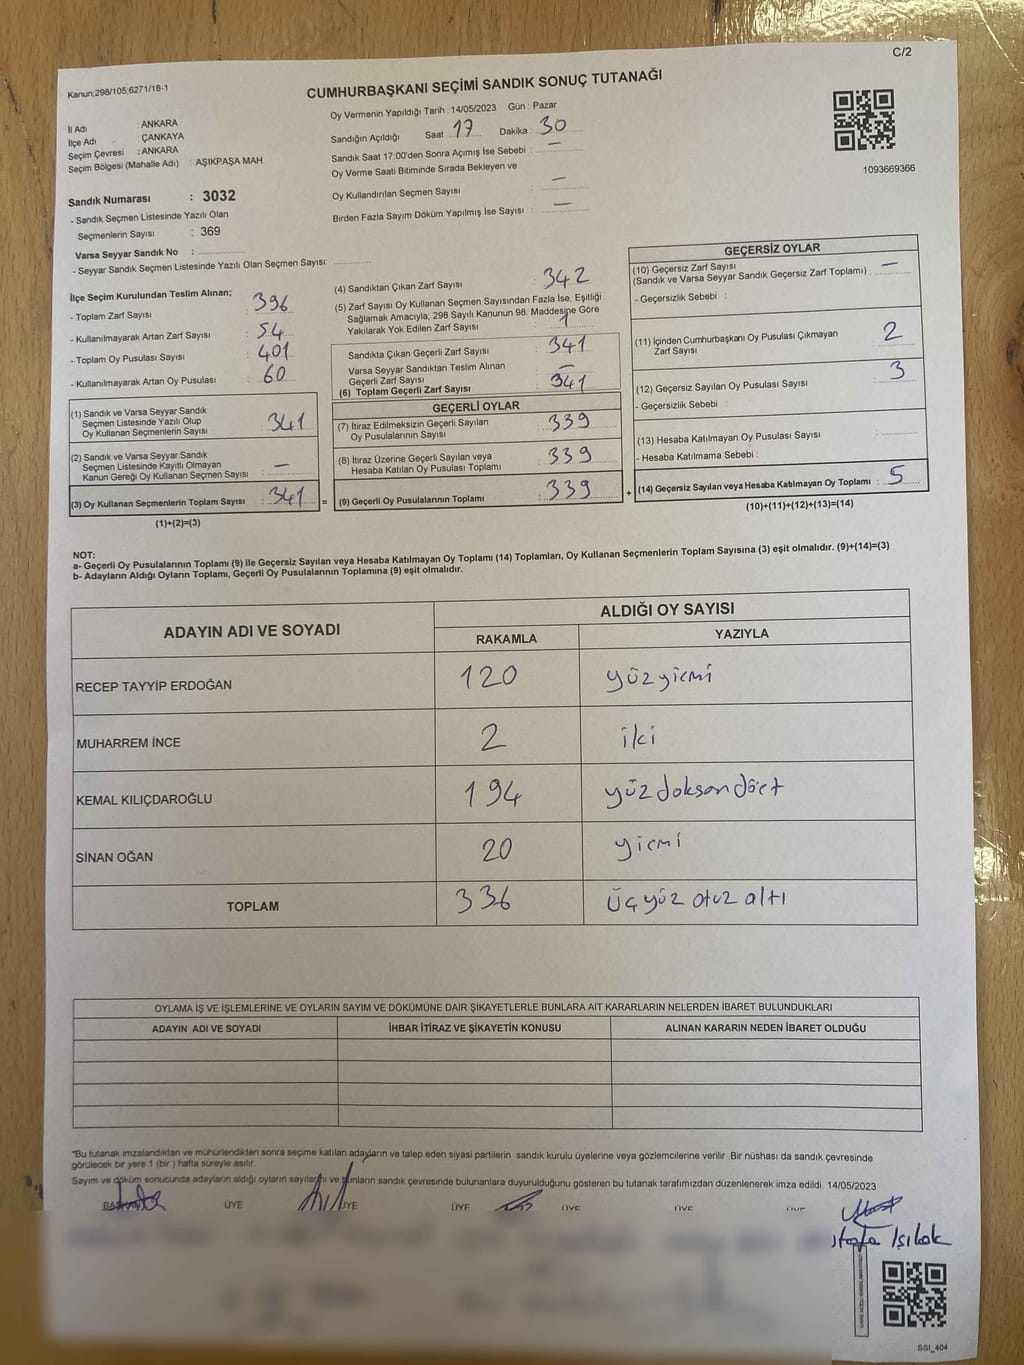 C/2
Kanun:298/105,6271/18-1
CUMHURBAŞKANI SEÇİMİ SANDIK SONUÇ TUTANAĞI
İl Adı : ANKARA
İlçe Adı : ÇANKAYA
Seçim Çevresi : ANKARA
Seçim Bölgesi (Mahalle Adı) : AŞIKPAŞA MAH.
Oy Vermenin Yapıldığı Tarih : 14/05/2023 Gün : Pazar
Sandığın Açıldığı Saat 17 Dakika : 30
Sandık Saat 17:00'den Sonra Açımış İse Sebebi : —
Oy Verme Saati Bitiminde Sırada Bekleyen ve
Oy Kullandırılan Seçmen Sayısı : —
Birden Fazla Sayım Döküm Yapılmış İse Sayısı : —
1093669366
Sandık Numarası : 3032
- Sandık Seçmen Listesinde Yazılı Olan
Seçmenlerin Sayısı : 369
Varsa Seyyar Sandık No :
- Seyyar Sandık Seçmen Listesinde Yazılı Olan Seçmen Sayısı:
İlçe Seçim Kurulundan Teslim Alınan;
- Toplam Zarf Sayısı : 396
- Kullanılmayarak Artan Zarf Sayısı : 54
- Toplam Oy Pusulası Sayısı : 401
- Kullanılmayarak Artan Oy Pusulası : 60
(1) Sandık ve Varsa Seyyar Sandık
Seçmen Listesinde Yazılı Olup
Oy Kullanan Seçmenlerin Sayısı : 341
(2) Sandık ve Varsa Seyyar Sandık
Seçmen Listesinde Kayıtlı Olmayan
Kanun Gereği Oy Kullanan Seçmen Sayısı : —
(3) Oy Kullanan Seçmenlerin Toplam Sayısı : 341 =
(1)+(2)=(3)
(4) Sandıktan Çıkan Zarf Sayısı : 342
(5) Zarf Sayısı Oy Kullanan Seçmen Sayısından Fazla İse, Eşitliği
Sağlamak Amacıyla; 298 Sayılı Kanunun 98. Maddesine Göre
Yakılarak Yok Edilen Zarf Sayısı : 1
Sandıkta Çıkan Geçerli Zarf Sayısı : 341
Varsa Seyyar Sandıktan Teslim Alınan
Geçerli Zarf Sayısı : —
(6) Toplam Geçerli Zarf Sayısı : 341
GEÇERLİ OYLAR
(7) İtiraz Edilmeksizin Geçerli Sayılan
Oy Pusulalarının Sayısı : 339
(8) İtiraz Üzerine Geçerli Sayılan veya
Hesaba Katılan Oy Pusulası Toplamı : 339
(9) Geçerli Oy Pusulalarının Toplamı : 339 +
GEÇERSİZ OYLAR
(10) Geçersiz Zarf Sayısı
(Sandık ve Varsa Seyyar Sandık Geçersiz Zarf Toplamı) : —
- Geçersizlik Sebebi :
(11) İçinden Cumhurbaşkanı Oy Pusulası Çıkmayan
Zarf Sayısı : 2
(12) Geçersiz Sayılan Oy Pusulası Sayısı : 3
- Geçersizlik Sebebi :
(13) Hesaba Katılmayan Oy Pusulası Sayısı :
- Hesaba Katılmama Sebebi :
(14) Geçersiz Sayılan veya Hesaba Katılmayan Oy Toplamı : 5
(10)+(11)+(12)+(13)=(14)
NOT:
a- Geçerli Oy Pusulalarının Toplamı (9) ile Geçersiz Sayılan veya Hesaba Katılmayan Oy Toplamı (14) Toplamları, Oy Kullanan Seçmenlerin Toplam Sayısına (3) eşit olmalıdır. (9)+(14)=(3)
b- Adayların Aldığı Oyların Toplamı, Geçerli Oy Pusulalarının Toplamına (9) eşit olmalıdır.
ADAYIN ADI VE SOYADI ALDIĞI OY SAYISI
RAKAMLA YAZIYLA
RECEP TAYYİP ERDOĞAN 120 yüzyirmi
MUHARREM İNCE 2 iki
KEMAL KILIÇDAROĞLU 194 yüzdoksandört
SİNAN OĞAN 20 yirmi
TOPLAM 336 üçyüz otuz altı
OYLAMA İŞ VE İŞLEMLERİNE VE OYLARIN SAYIM VE DÖKÜMÜNE DAİR ŞİKAYETLERLE BUNLARA AİT KARARLARIN NELERDEN İBARET BULUNDUKLARI
ADAYIN ADI VE SOYADI İHBAR İTİRAZ VE ŞİKAYETİN KONUSU ALINAN KARARIN NEDEN İBARET OLDUĞU
*Bu tutanak imzalandıktan ve mühürlendikten sonra seçime katılan adayların ve talep eden siyasi partilerin sandık kurulu üyelerine veya gözlemcilerine verilir. Bir nüshası da sandık çevresinde
görülecek bir yere 1 (bir ) hafta süreyle asılır.
Sayım ve döküm sonucunda adayların aldığı oyların sayılarını ve bunların sandık çevresinde bulunanlara duyurulduğunu gösteren bu tutanak tarafımızdan düzenlenerek imza edildi. 14/05/2023
BAŞKAN ÜYE ÜYE ÜYE ÜYE ÜYE ÜYE
Işılak
SSI_404